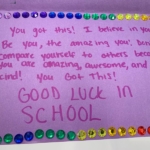 You got this! I believe in you
Be you, the amazing you!
compare yourself to others
you are amazing, awesome, and
kind! You Got This!
GOOD LUCK In
SCHOOL